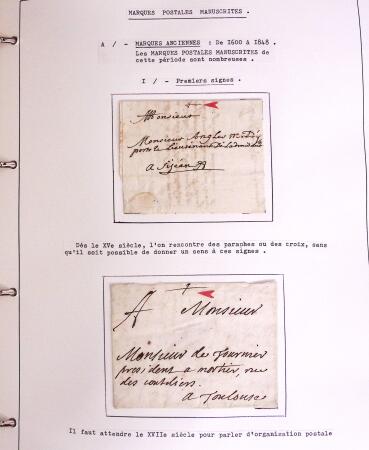 MARQUES POSTALES MANUSCRITES .
A / - MARQUES ANCIENNES : De 1600 à 1848.
Les MARQUES POSTALES MANUSCRITES de
cette période sont nombreuses .
I / - Premiers signes .
Monsieur
Monsieur Angles
porte Lieutenant de
a Sijean
Dès le XVe siècle, l'on rencontre des paraphes ou des croix, sans
qu'il soit possible de donner un sens à ces signes .
A Monsieur
Monsieur de Fournier
president a mortier, rue
des couteliers.
a Toulouse
Il faut attendre le XVIIe siècle pour parler d'organisation postale